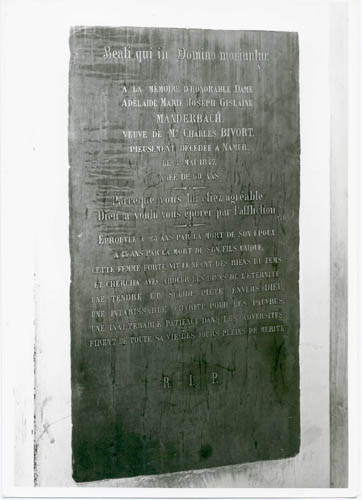 Beati qui in Domino moriuntur
A LA MÉMOIRE D'HONORABLE DAME
ADÉLAIDE MARIE JOSEPH GISLAINE
MANDERBACH,
VEUVE DE Mr CHARLES BIVORT,
PIEUSEMENT DÉCÉDÉE A NAMUR,
LE MAI 1847,
AGÉE DE 60 ANS
Parce que vous lui étiez agréable
Dieu a voulu vous éprouver par l'affliction
EPROUVÉE A ANS PAR LA MORT DE SON EPOUX,
A ANS PAR LA MORT DE SON FILS UNIQUE,
CETTE FEMME FORTE FAIT LE NÉANT DES BIENS DU TEMS
ET CHERCHA AVEC ARDEUR LES BIENS DE L'ÉTERNITÉ
UNE TENDRE ET SOLIDE PIÉTÉ ENVERS DIEU,
UNE INTARISSABLE CHARITÉ POUR LES PAUVRES,
UNE INALTÉRABLE PATIENCE DANS LES ADVERSITÉS
FIRENT DE TOUTE SA VIE DES JOURS PLEINS DE MÉRITE
R. I. P.